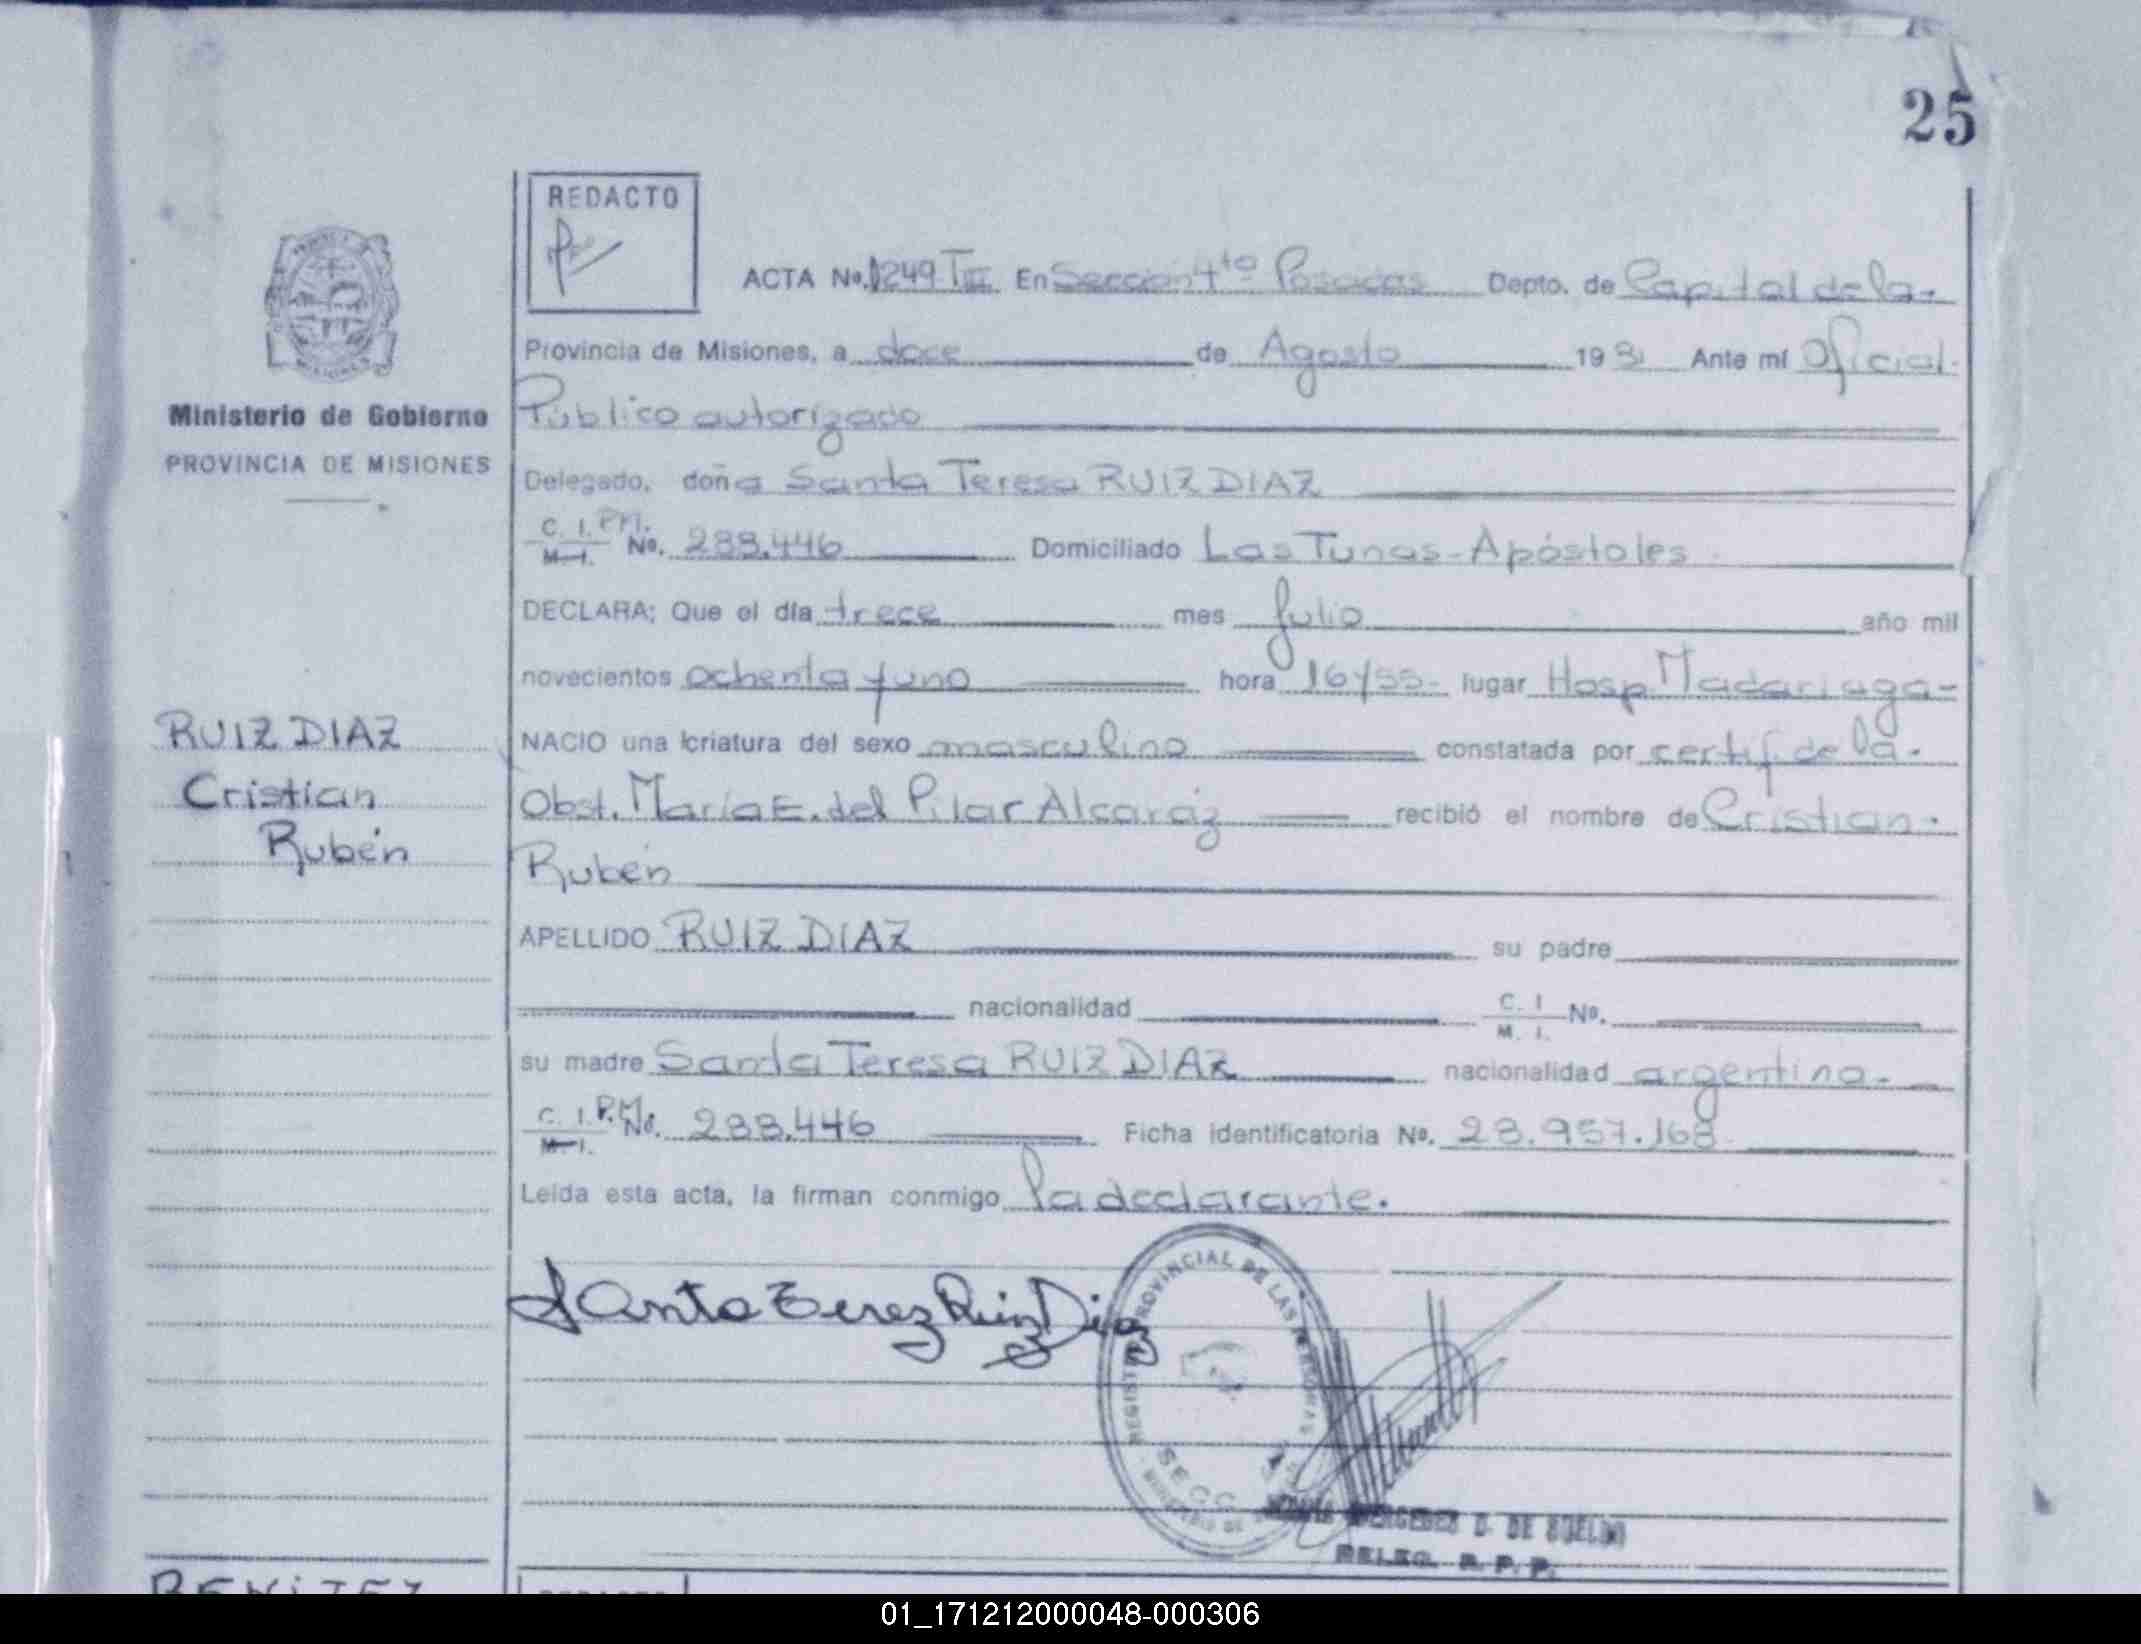 25
REDACTO
ACTA No. 1249 TIII En Sección 4to Posadas Depto. de Capital de la-
Provincia de Misiones, a doce de Agosto 1981 Ante mí Oficial-
Público autorizado
Ministerio de Gobierno
PROVINCIA DE MISIONES
Delegado, doña Santa Teresa RUIZ DIAZ
C. I. P.M. No. 288.446 Domiciliado Las Tunas-Apóstoles
M. I.
DECLARA; Que el día trece mes Julio año mil
novecientos ochenta y uno hora 16/55- lugar Hosp. Madariaga-
RUIZ DIAZ
Cristian
Rubén
NACIO una criatura del sexo masculino constatada por certif. de la-
Obst. María E. del Pilar Alcaráz recibió el nombre de Cristian-
Rubén
APELLIDO RUIZ DIAZ su padre
nacionalidad C. I. No.
M. I.
su madre Santa Teresa RUIZ DIAZ nacionalidad argentina-
C. I. P.M. No. 288.446 Ficha identificatoria No. 28.957.168
M. I.
Leída esta acta, la firman conmigo la declarante.
Santa Terez Ruiz Diaz
REGISTRO PROVINCIAL DE LAS PERSONAS
SECC.
MINISTERIO DE
MERCEDES D. DE
DELEG. R. P. P.
BENITEZ
01_171212000048-000306